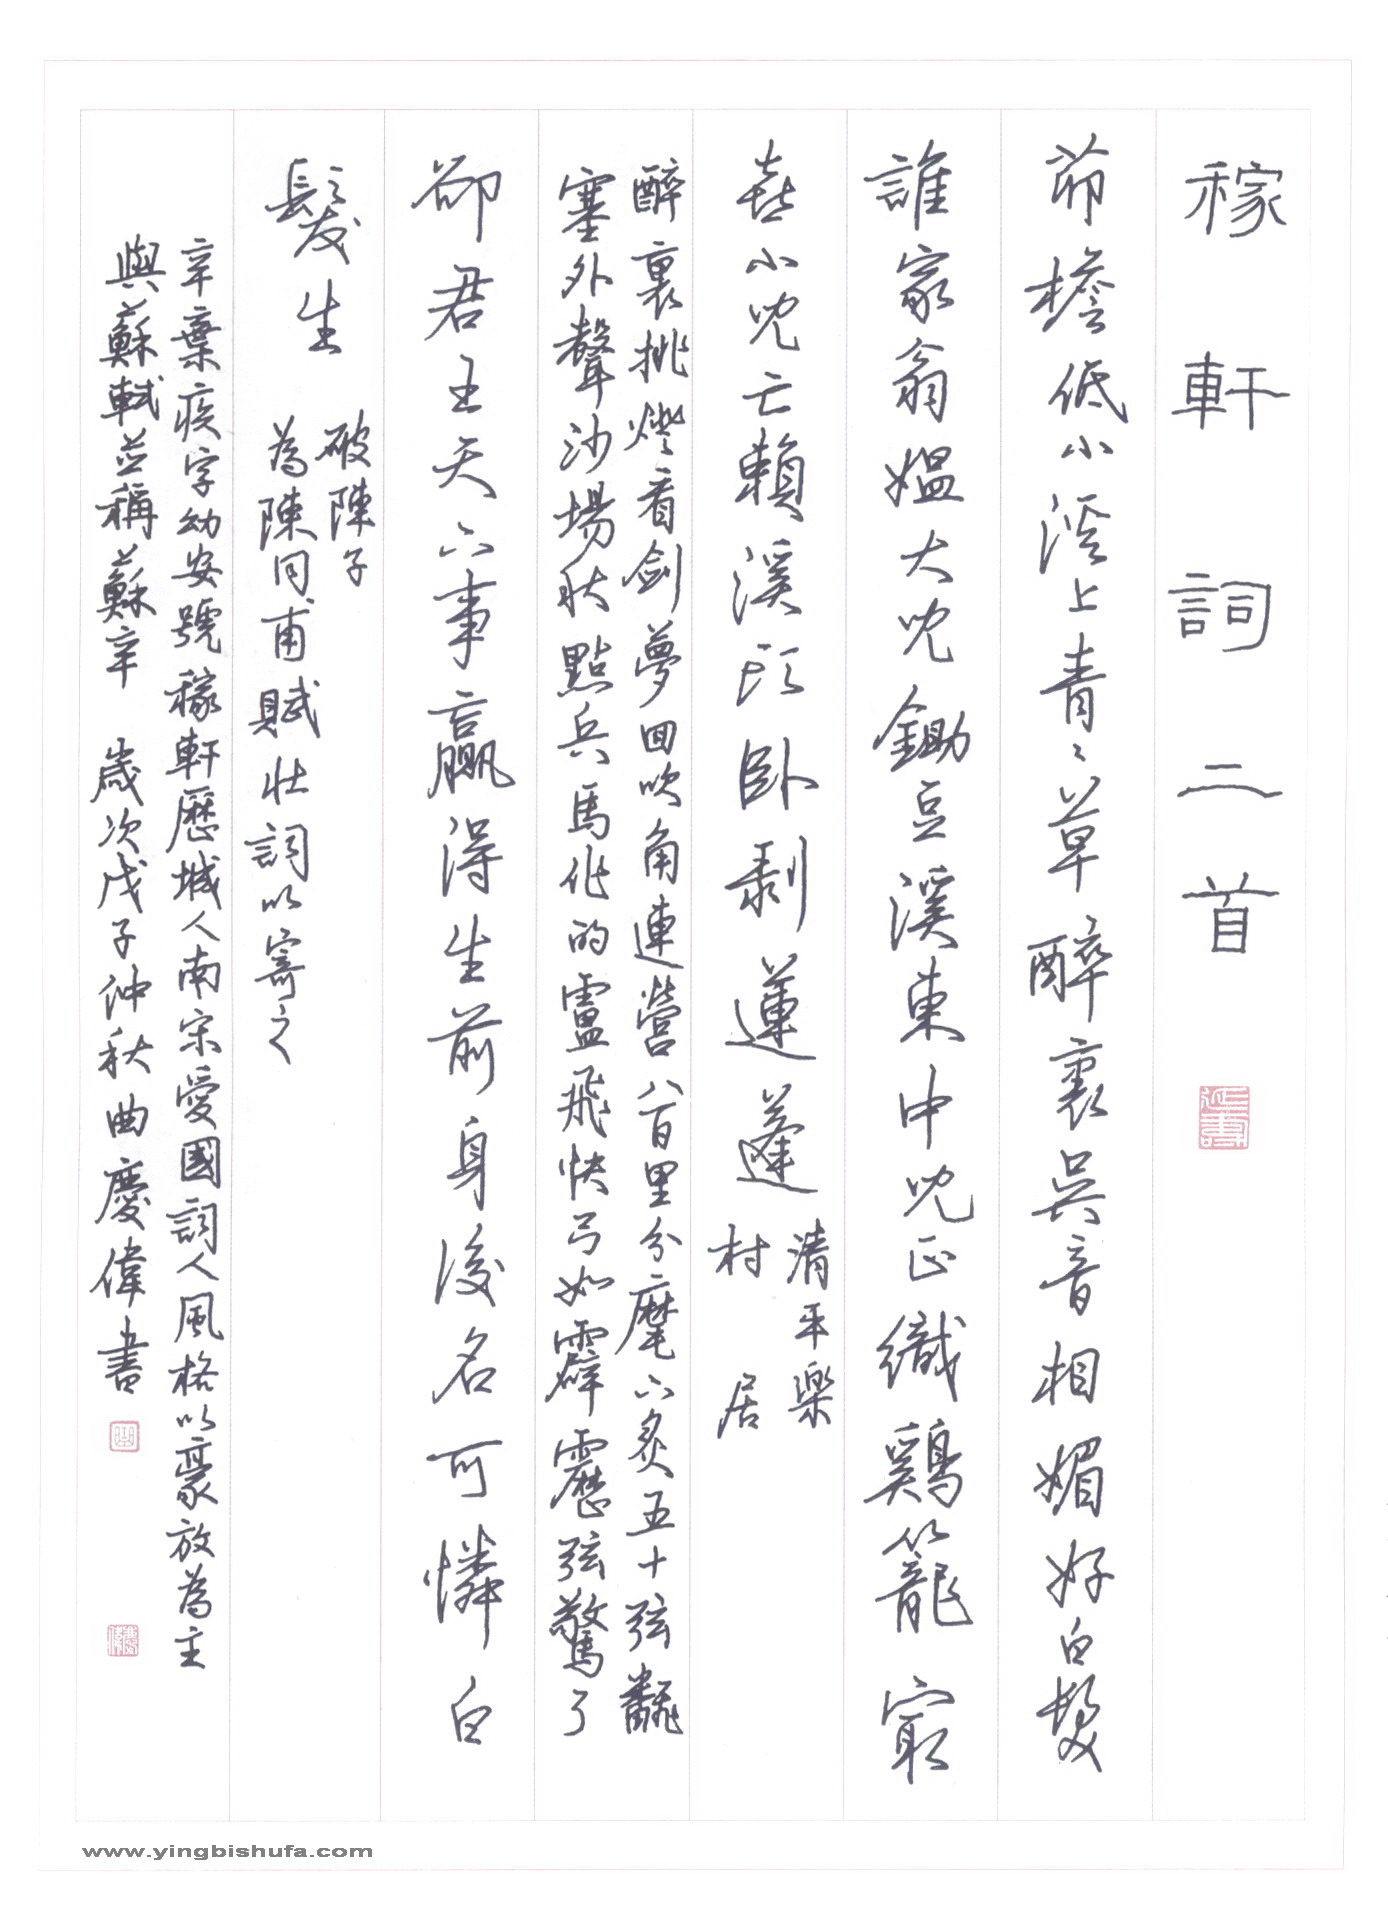 稼軒詞二首
茆檐低小溪上青々草醉裏吳音相媚好白髮
誰家翁媼大兒鋤豆溪東中兒正織鷄籠最
喜小兒亡賴溪頭卧剥蓮蓬
清平樂
村居
醉裏挑燈看劍夢回吹角連營八百里分麾下炙五十弦翻
塞外聲沙場秋點兵馬作的盧飛快弓如霹靂弦驚了
卻君王天下事贏得生前身後名可憐白
髮生
破陣子
為陳同甫賦壯詞以寄之
辛棄疾字幼安號稼軒歷城人南宋愛國詞人風格以豪放為主
與蘇軾並稱蘇辛 歲次戊子仲秋曲慶偉書
www.yingbishufa.com